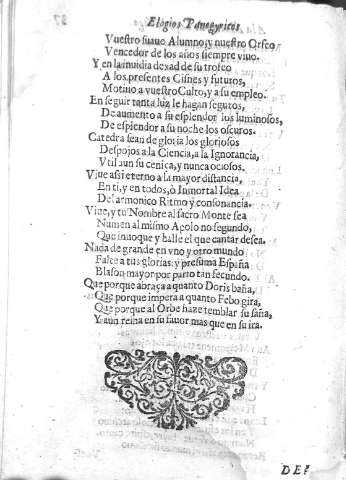 Elogios Panegyricos
Vuestro suaue Alumno, y nuestro Orfeo
Vencedor de los años siempre viuo.
Y en la inuidia dexad de su trofeo
A los presentes Cisnes y futuros,
Motiuo a vuestro Culto, y a su empleo.
En seguir tanta luz le hagan seguros,
De aumento a su esplendor los luminosos,
De esplendor a su noche los oscuros.
Catedra sean de gloria los gloriosos
Despojos a la Ciencia, a la Ignorancia,
Vtil aun su ceniça, y nunca ociosos.
Viue assi eterno a la mayor distancia,
En ti, y en todos, ò Inmortal Idea
Del armonico Ritmo y consonancia.
Viue, y tu Nombre al sacro Monte sea
Numen al mismo Apolo no segundo,
Que inuoque y halle el que cantar desea.
Nada de grande en vno y otro mundo
Falte a tus glorias: y presuma España
Blason mayor por parto tan fecundo.
Que porque abraça a quanto Doris baña,
Que porque impera a quanto Febo gira,
Que porque al Orbe haze temblar su saña,
Y aun reina en su fauor mas que en su ira.
DE?